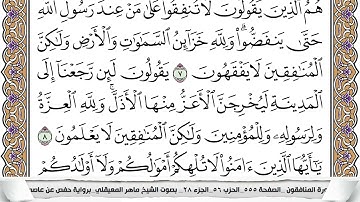 هُمُ ٱلَّذِينَ يَقُولُونَ لَا تُنفِقُوا۟ عَلَىٰ مَنْ عِندَ رَسُولِ ٱللَّهِ
حَتَّىٰ يَنفَضُّوا۟ ۗ وَلِلَّهِ خَزَآئِنُ ٱلسَّمَٰوَٰتِ وَٱلْأَرْضِ وَلَٰكِنَّ
ٱلْمُنَٰفِقِينَ لَا يَفْقَهُونَ ٧ يَقُولُونَ لَئِن رَّجَعْنَآ إِلَى
ٱلْمَدِينَةِ لَيُخْرِجَنَّ ٱلْأَعَزُّ مِنْهَا ٱلْأَذَلَّ ۚ وَلِلَّهِ ٱلْعِزَّةُ
وَلِرَسُولِهِۦ وَلِلْمُؤْمِنِينَ وَلَٰكِنَّ ٱلْمُنَٰفِقِينَ لَا يَعْلَمُونَ ٨
يَٰٓأَيُّهَا ٱلَّذِينَ ءَامَنُوا۟ لَا تُلْهِكُمْ أَمْوَٰلُكُمْ وَلَآ أَوْلَٰدُكُمْ
المنافقون - الصفحة ٥٥٥ - الحزب ٥٦ - الجزء ٢٨ - بصوت الشيخ ماهر المعيقلي - برواية حفص عن عاصم